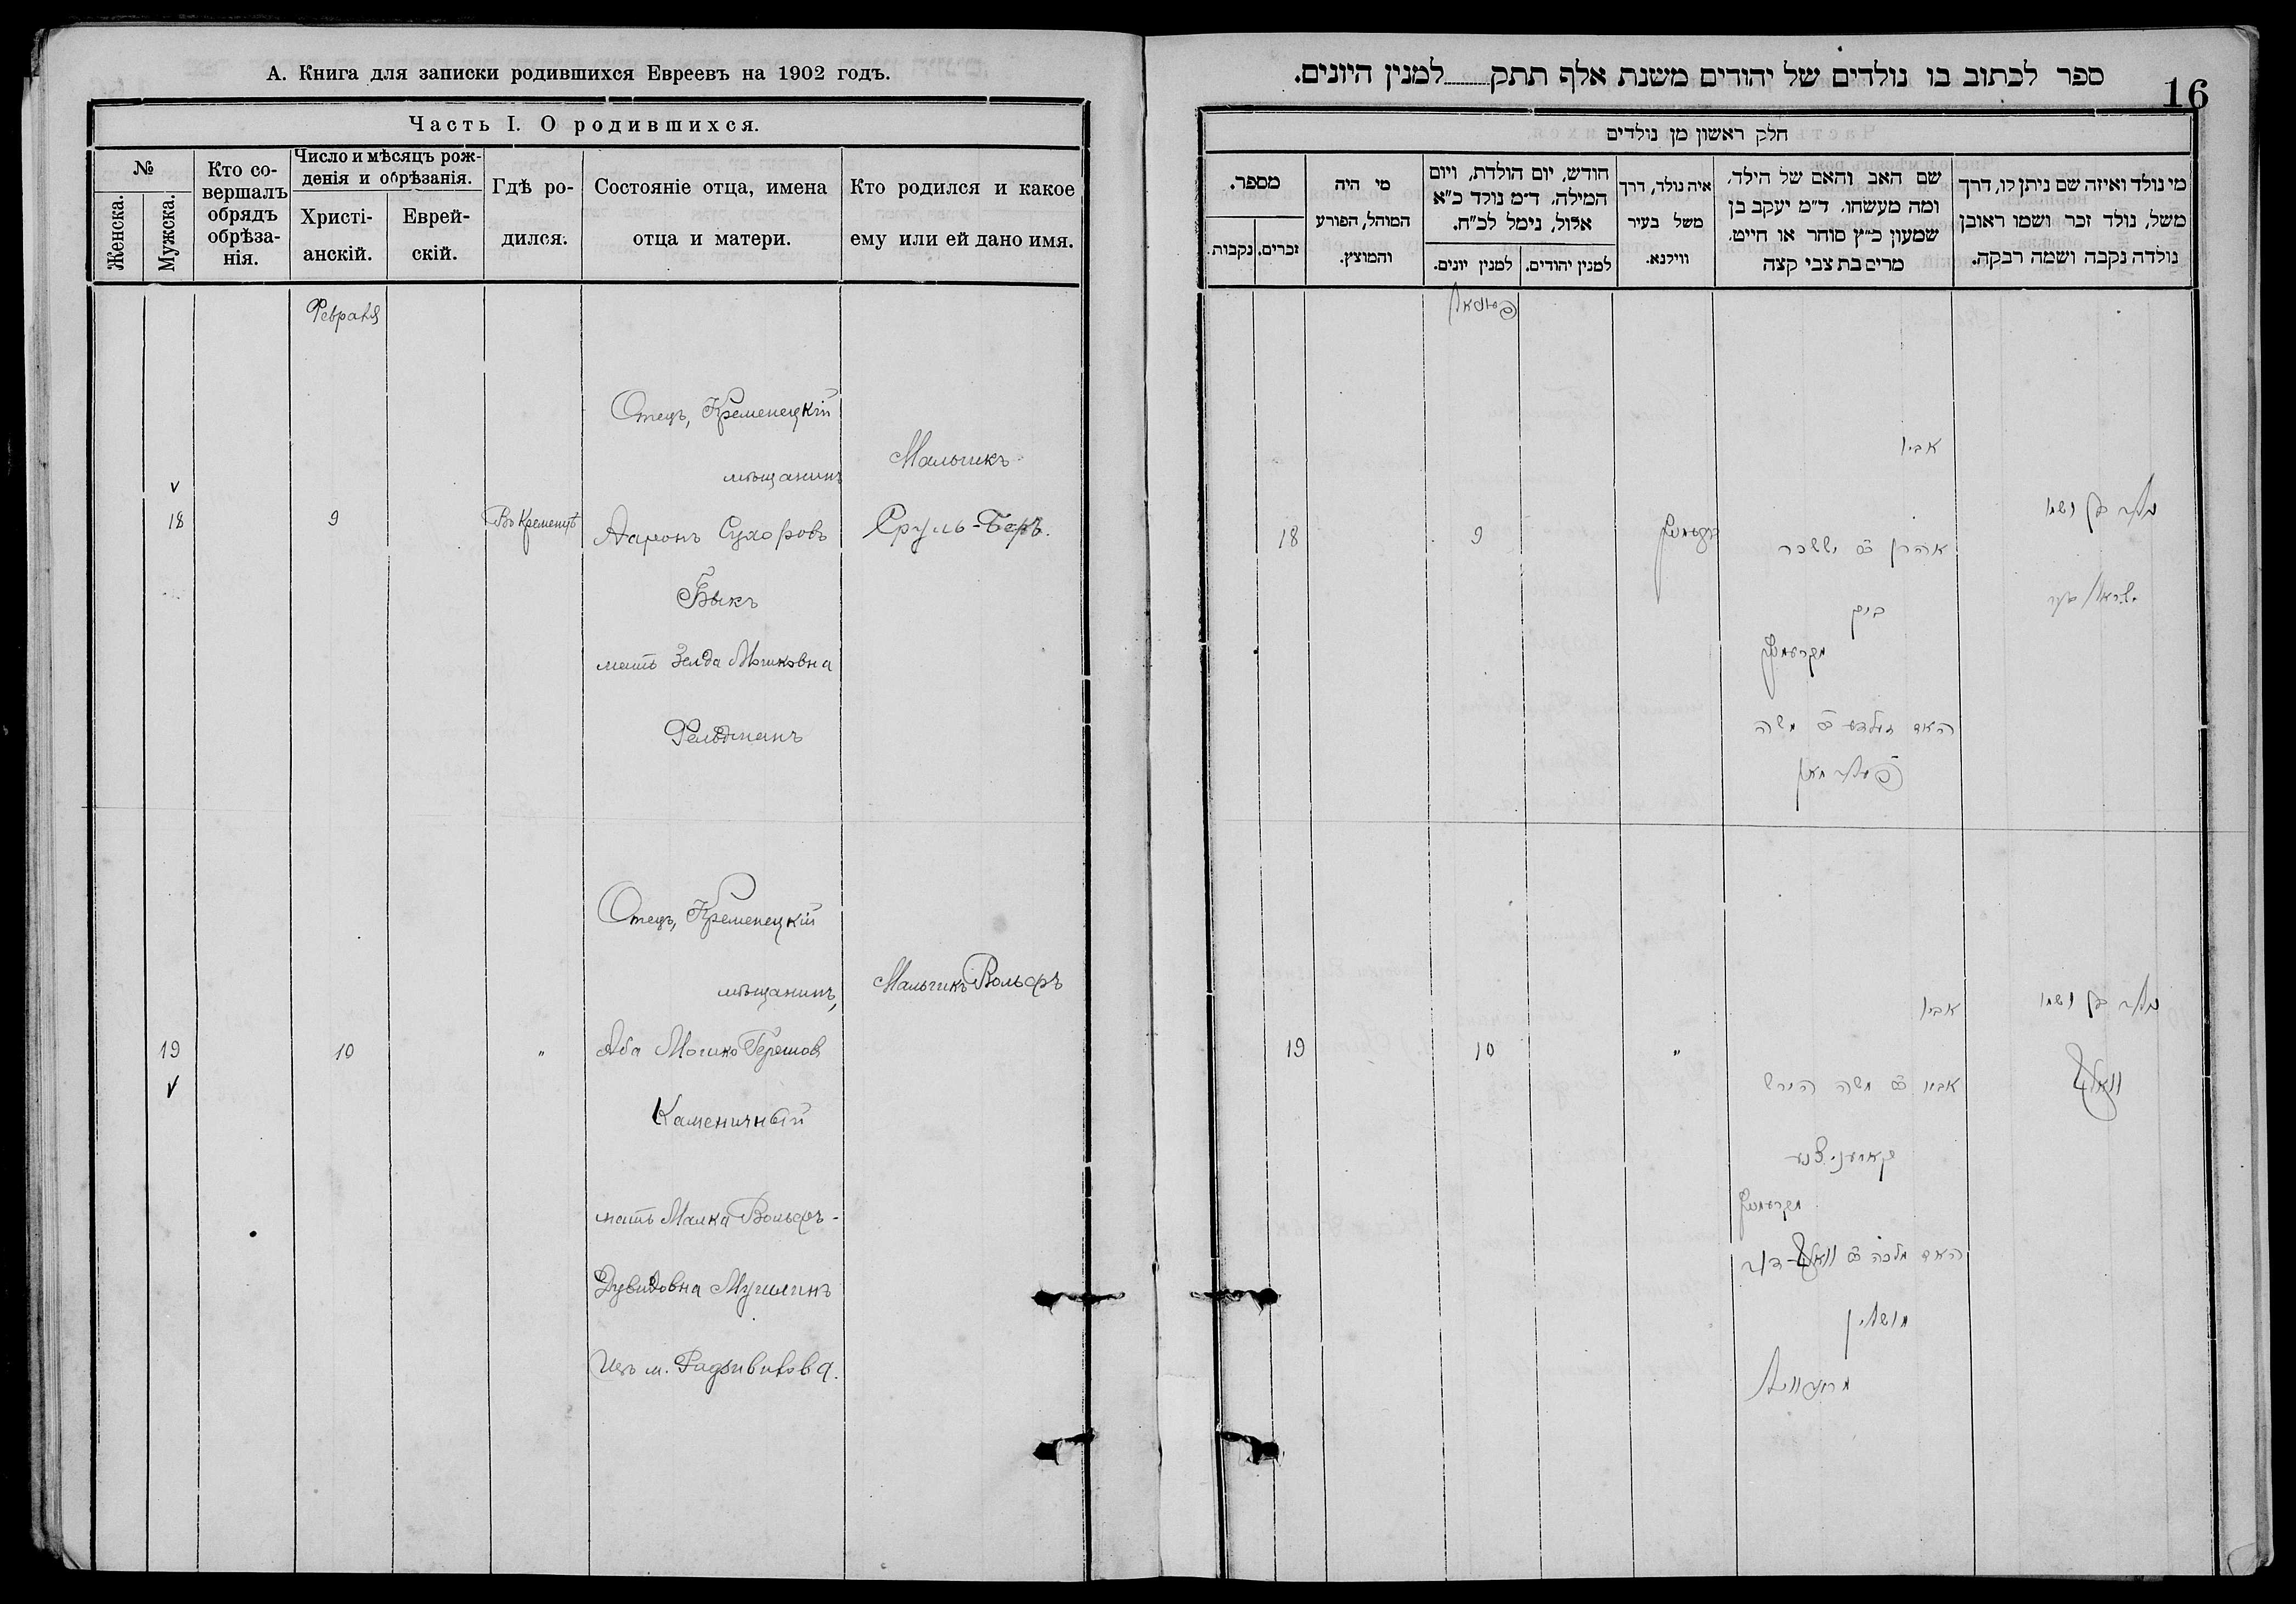 А. Книга для записки родившихся Евреевъ на 1902 годъ.
Часть I. О родившихся.
№
Женска.
Мужска.
Кто со-
вершалъ
обрядъ
обрѣза-
нія.
Число и мѣсяцъ рож-
денія и обрѣзанія.
Христі-
анскій.
Еврей-
скій.
Гдѣ ро-
дился.
Состояніе отца, имена
отца и матери.
Кто родился и какое
ему или ей дано имя.
Февраля
Отецъ, Кременецкій
мѣщанинъ
Мальчикъ
18
9
Въ Кременцѣ
Ааронъ
Сруль-Беръ.
Быкъ
мать Зелда Мошковна
Фельдманъ
Отецъ, Кременецкій
мѣщанинъ,
Мальчикъ Вольфъ
19
10
"
Аба Мошко Гершов
Каменичный
мать Малка Вольфъ-
Дувидовна Мушлинъ
изъ м. Радзивилова.
ספר לכתוב בו נולדים של יהודים משנת אלף תתק למנין היונים.
16
חלק ראשון מן נולדים
מי נולד ואיזה שם ניתן לו, דרך
משל, נולד זכר ושמו ראובן
נולדה נקבה ושמה רבקה.
שם האב והאם של הילד,
ומה מעשהו. ד"מ יעקב בן
שמעון כ"ץ סוחר או חייט.
מרים בת צבי קצה
איה נולד, דרך
משל בעיר
ווילנא.
חודש, יום הולדת, ויום
המילה. ד"מ נולד כ"א
אלול, נימל לכ"ח.
למנין יהודים.
למנין יונים.
מי היה
המוהל, הפורע
והמוצץ.
מספר.
זכרים.
נקבות.
אביו
נולד בן ושמו
18
9
קרעמעניץ
אהרן ב"ר יששכר
ישראל בער
ביק
מקרעמעניץ
האם זעלדע ב"ר משה
פעלדמאן
נולד בן ושמו
אביו
19
10
"
אבא ב"ר משה הירש
וואלף
קאמעניצנע
מקרעמעניץ
האם מלכה ב"ר וואלף-דוד
מושלין